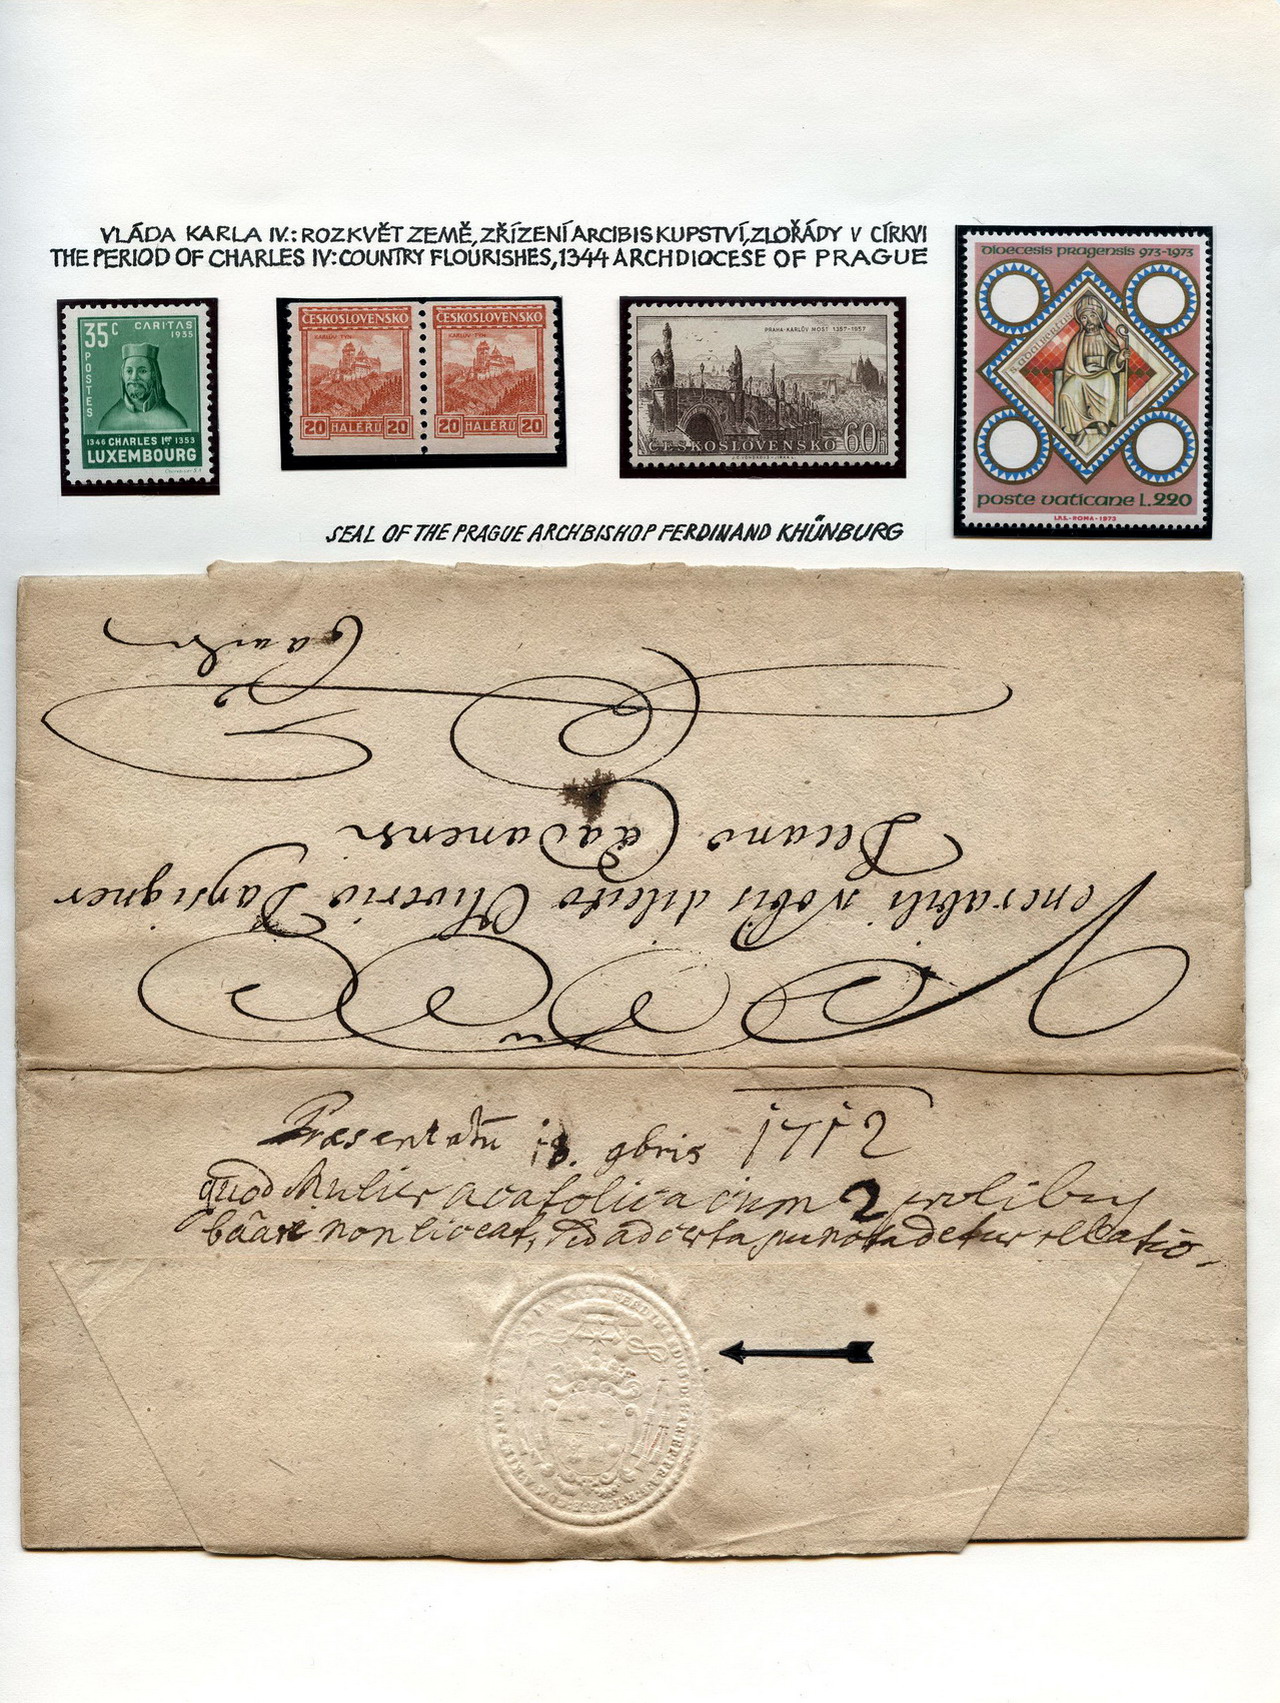 VLÁDA KARLA IV.: ROZKVĚT ZEMĚ, ZŘÍZENÍ ARCIBISKUPSTVÍ, ZLOŘÁDY V CÍRKVI
THE PERIOD OF CHARLES IV: COUNTRY FLOURISHES, 1344 ARCHDIOCESE OF PRAGUE
35c CARITAS
1935
POSTES
1346 CHARLES Ier 1353
LUXEMBOURG
ČESKOSLOVENSKO
KARLŮV TÝN
20 HALÉŘŮ 20
ČESKOSLOVENSKO
KARLŮV TÝN
20 HALÉŘŮ 20
PRAHA-KARLŮV MOST 1357-1957
ČESKOSLOVENSKO 60h
dioecesis pragensis 973-1973
poste vaticane L.220
I.P.S.-ROMA-1973
SEAL OF THE PRAGUE ARCHBISHOP FERDINAND KHÜNBURG
Venerabili Nobis dilecto
Decano Cadanensi
Præsentatū 18. 9bris 1712
quod Mulier acatolica cum 2 prolibus
non liceat, sed ad certa puncta detur relatio.